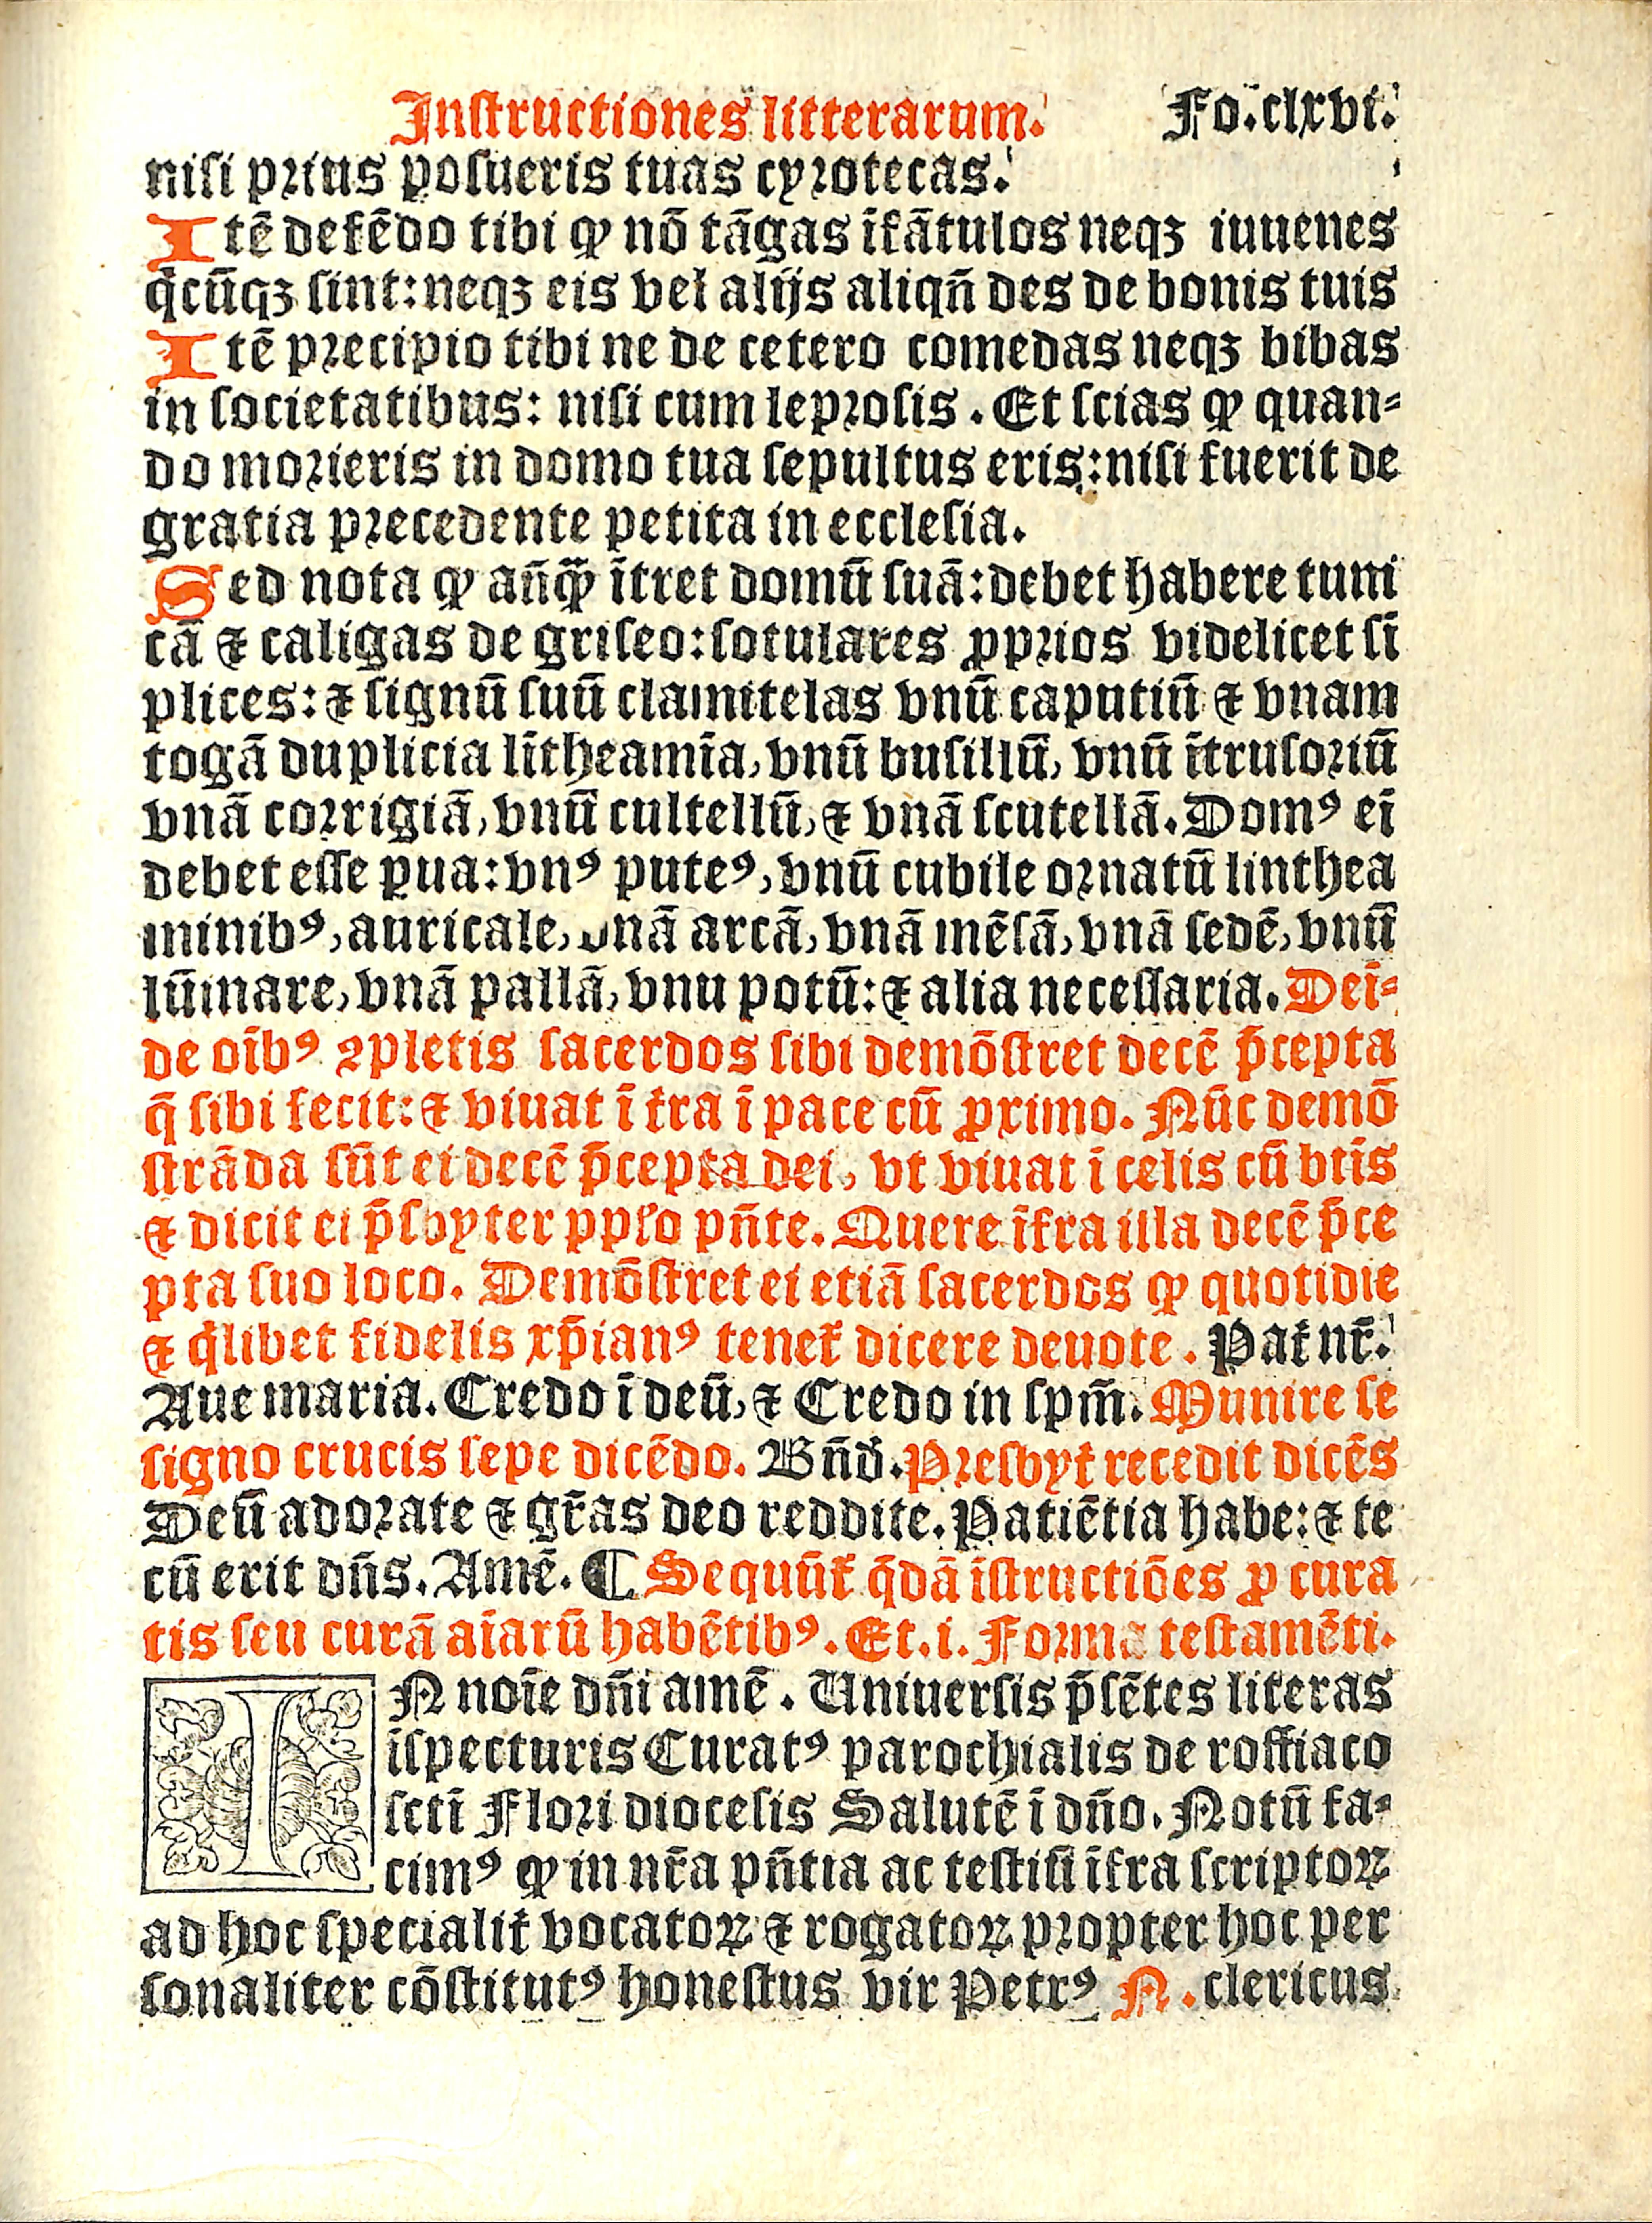 Instructiones litterarum. Fo. clxvi.
nisi prius posueris tuas cyrotecas.
Itē defēdo tibi ꝙ nō tāgas īfātulos neqꝫ iuuenes
q̄cūqꝫ sint: neqꝫ eis vel alijs aliqn̄ des de bonis tuis
Itē precipio tibi ne de cetero comedas neqꝫ bibas
in societatibus: nisi cum leprosis. Et scias ꝙ quan-
do morieris in domo tua sepultus eris: nisi fuerit de
gratia precedente petita in ecclesia.
Sed nota ꝙ an̄ꝙ̄ ītret domū suā: debet habere tuni
cā ⁊ caligas de griseo: sotulares ꝓprios videlicet sī
plices: ⁊ signū suū clamitelas vnū caputiū ⁊ vnam
togā duplicia lītheamīa, vnū busillū, vnū ītrusoriū
vnā corrigiā, vnū cultellū, ⁊ vnā scutellā. Domꝰ ei
debet esse ꝑua: vnꝰ puteꝰ, vnū cubile ornatū linthea
minibꝰ, auricale, vnā arcā, vnā mēsā, vnā sedē, vnū
lūinare, vnā pallā, vnu potū: ⁊ alia necessaria. Deī-
de oībꝰ ꝯpletis sacerdos sibi demōstret decē p̄cepta
q̄ sibi fecit: ⁊ viuat ī t̄ra ī pace cū ꝓximo. Nūc demō
strāda sūt ei decē p̄cepta dei, vt viuat ī celis cū btīs
⁊ dicit ei p̄sbyter pplo pn̄te. Quere īfra illa decē p̄ce
pta suo loco. Demōstret ei etiā sacerdos ꝙ quotidie
⁊ q̄libet fidelis xp̄ianꝰ tenet̄ dicere deuote. Pat̄ nr̄.
Aue maria. Credo ī deū, ⁊ Credo in spm̄. Munire se
signo crucis sepe dicēdo. Bn̄d̄. Presbyt̄ recedit dicēs
Deū adorate ⁊ gr̄as deo reddite. Patiētia habe: ⁊ te
cū erit dn̄s. Amē. ¶ Sequūt̄ q̄dā īstructiōes ꝓ cura
tis seu curā aīarū habētibꝰ. Et. i. Forma testamēti.
IN noīe dn̄i amē. Uniuersis p̄sētes literas
īspecturis Curatꝰ parochialis de roffiaco
sctī Flori diocesis Salutē ī dn̄o. Notū fa-
cimꝰ ꝙ in nr̄a pn̄tia ac testiū īfra scriptoꝝ
ad hoc specialit̄ vocatoꝝ ⁊ rogatoꝝ propter hoc per
sonaliter cōstitutꝰ honestus vir Petrꝰ N. clericus